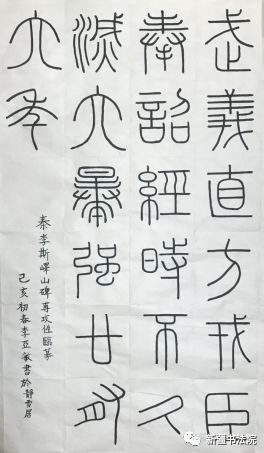 武義直方戎臣
奉詔經時不久
滅六暴強廿有
六年
秦李斯嶧山碑
己亥初春李亞敏書於靜雲居
新疆书法院